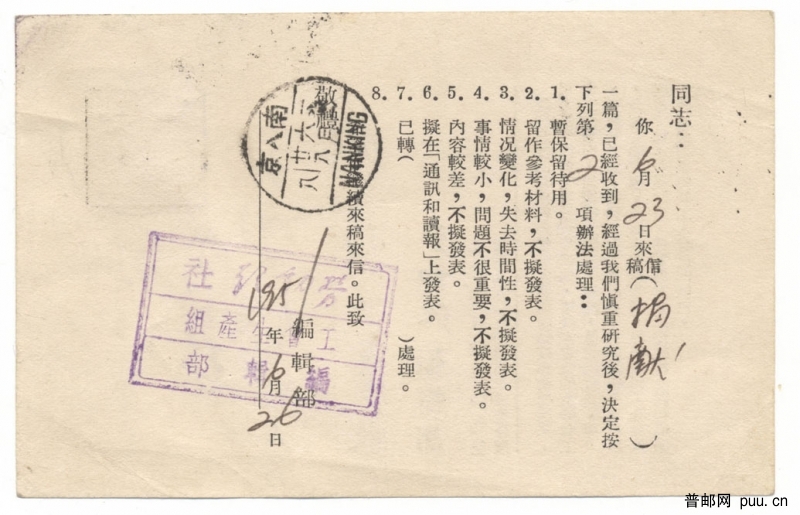 同志：
你 6月23日來信稿（捐獻）
一篇，已經收到，經過我們慎重研究後，決定按
下列第 2 項辦法處理：
1. 暫保留待用。
2. 留作參考材料，不擬發表。
3. 情況變化，失去時間性，不擬發表。
4. 事情較小，問題不很重要，不擬發表。
5. 內容較差，不擬發表。
6. 擬在「通訊和讀報」上發表。
7. 已轉（ ）處理。
8.
續來稿來信。此致
敬禮
編輯部
1951年6月26日
南京
NANKING
社
工會生產組
編輯部
普邮网 puu.cn